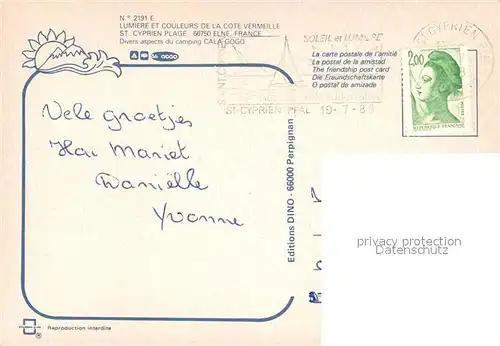 N° 2191 E
LUMIERE ET COULEURS DE LA COTE VERMEILLE
ST. CYPRIEN PLAGE 66750 ELNE, FRANCE
Divers aspects du camping CALA GOGO
SOLEIL et LUMIERE
ST-CYPRIEN PPAL 19-7-88
ST-CYPRIEN
La carte postale de l'amitié
La postal de la amistad
The friendship post card
Die Freundschaftskarte
O postal de amizade
2,00
POSTES
REPUBLIQUE FRANÇAISE
Vele groetjes
Hai Mariet
Daniëlle
Yvonne
Editions DINO - 66000 Perpignan
privacy protection
Datenschutz
Reproduction interdite